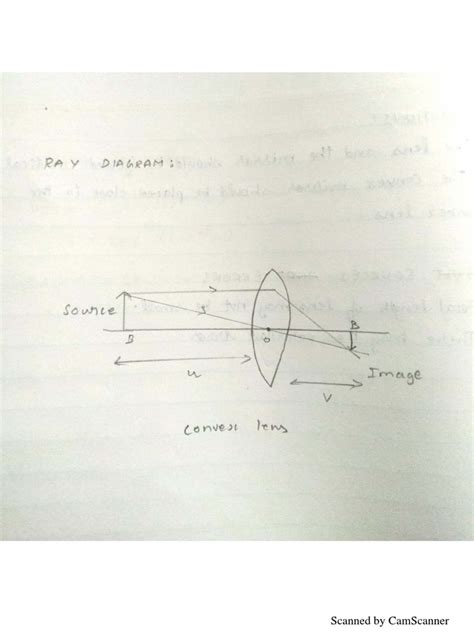 RAY DIAGRAM:
Source
B
O
B
u
Image
v
Convex lens
Scanned by CamScanner